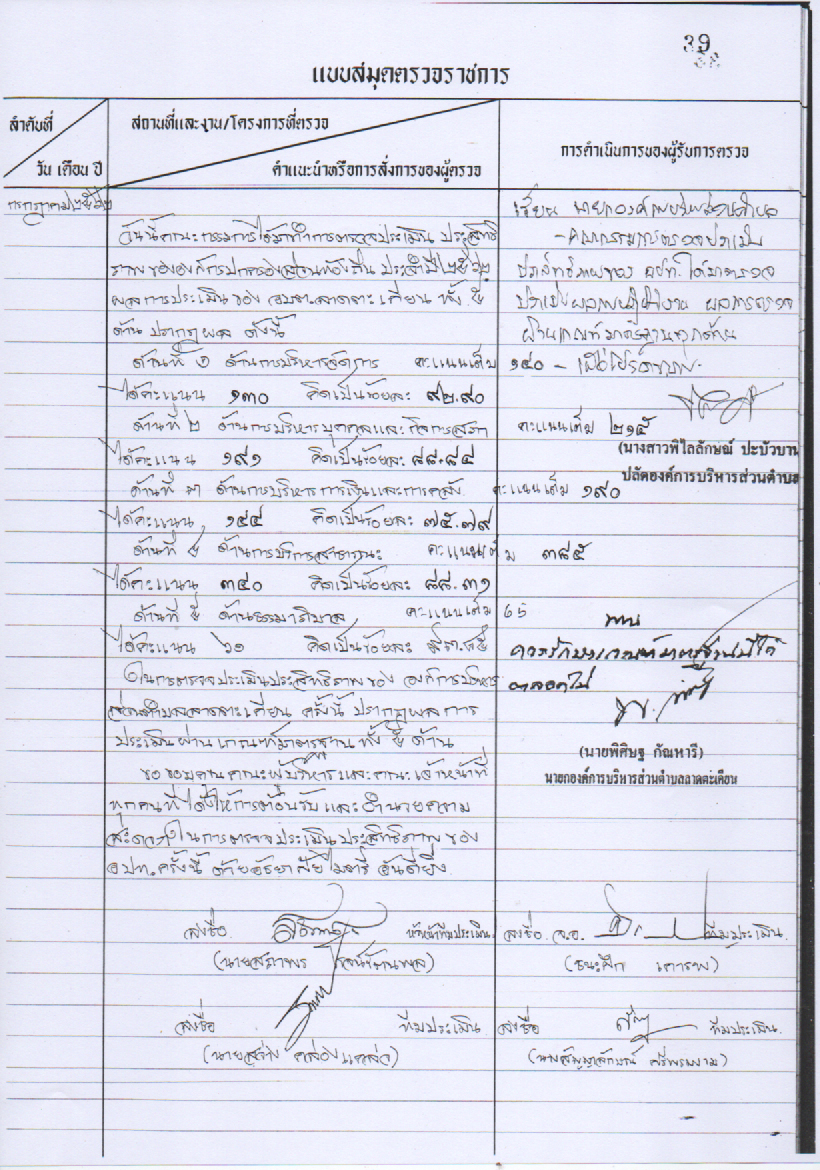 39
แบบสมุดตรวจราชการ
ลำดับที่
วัน เดือน ปี
สถานที่และงาน/โครงการที่ตรวจ
คำแนะนำหรือการสั่งการของผู้ตรวจ
การดำเนินการของผู้รับการตรวจ
กรกฎาคม ๒๕๖๒
วันนี้คณะกรรมการได้มาทำการตรวจประเมิน ประสิทธิ
ภาพขององค์กรปกครองส่วนท้องถิ่น ประจำปี ๒๕๖๒
ผลการประเมินของ อบต.ลาดตะเคียน ทั้ง ๕
ด้าน ปรากฏผล ดังนี้
ด้านที่ ๑ ด้านการบริหารจัดการ คะแนนเต็ม ๑๔๐
ได้คะแนน ๑๓๐ คิดเป็นร้อยละ ๙๒.๙๐
ด้านที่ ๒ ด้านการบริหารบุคคลและกิจการสภา คะแนนเต็ม ๒๑๕
ได้คะแนน ๑๙๑ คิดเป็นร้อยละ ๘๘.๘๔
ด้านที่ ๓ ด้านการบริหารการเงินและการคลัง คะแนนเต็ม ๑๙๐
ได้คะแนน ๑๔๔ คิดเป็นร้อยละ ๗๕.๗๙
ด้านที่ ๔ ด้านการบริการสาธารณะ คะแนนเต็ม ๓๘๕
ได้คะแนน ๓๔๐ คิดเป็นร้อยละ ๘๘.๓๑
ด้านที่ ๕ ด้านธรรมาภิบาล คะแนนเต็ม 65
ได้คะแนน ๖๑ คิดเป็นร้อยละ
ในการตรวจประเมินประสิทธิภาพของ องค์การบริหาร
ส่วนตำบลลาดตะเคียน ครั้งนี้ ปรากฏผลการ
ประเมินผ่านเกณฑ์มาตรฐานทั้ง ๕ ด้าน
ขอขอบคุณคณะผู้บริหารและคณะเจ้าหน้าที่
ทุกคนที่ได้ให้การต้อนรับ และอำนวยความ
สะดวกในการตรวจประเมินประสิทธิภาพของ
อปท.ครั้งนี้ ด้วยอัธยาศัยไมตรี อันดียิ่ง
เรียน นายกองค์การบริหารส่วนตำบล
- คณะกรรมการตรวจประเมิน
ประสิทธิภาพของ อปท. ได้มาตรวจ
ประเมินผลการปฏิบัติงาน ผลการตรวจ
ผ่านเกณฑ์มาตรฐานทุกด้าน
- เพื่อโปรดทราบ
(นางสาวพิไลลักษณ์ ปะบัวบาน
ปลัดองค์การบริหารส่วนตำบล
ทราบ
ควรรักษาเกณฑ์มาตรฐานนี้ไว้
ตลอดไป
(นายพิศิษฐ กัณหารี)
นายกองค์การบริหารส่วนตำบลลาดตะเคียน
ลงชื่อ หัวหน้าทีมประเมิน ลงชื่อ จ.อ. ทีมประเมิน
(นายสถาพร
ลงชื่อ ทีมประเมิน ลงชื่อ ทีมประเมิน
(นายสว่าง คล่องแคล่ว)